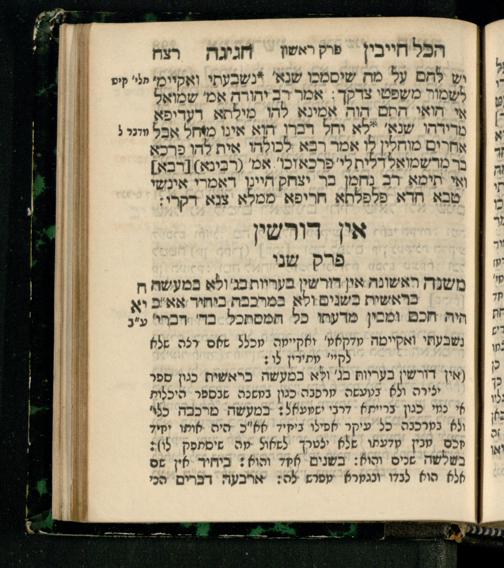 הכל חייבין פרק ראשון חגיגה רצח
יש להם על מה שיסמכו שנא' *נשבעתי ואקיימ' תלי' קיט
לשמור משפטי צדקך: אמר רב יהודה אמ' שמואל
אי הואי התם הוה אמינא להו מילתא דעדיפא
מדידהו שנא' *לא יחל דברו הוא אינו מיחל אבל מדבר ל
אחרים מוחלין לו אמר רבא לכולהו אית להו פרכא
בר מדשמואל דלית לי' פרכא דכו' אמ' (רבינא) [רבא]
ואי תימא רב נחמן בר יצחק היינו דאמרי אינשי
טבא חדא פלפלתא חריפא ממלא צנא דקרי:
אין דורשין
פרק שני
משנה ראשונה אין דורשין בעריות בג' ולא במעשה ח
בראשית בשנים ולא במרכבה ביחיד אא"כ יא
היה חכם ומבין מדעתו כל המסתכל בד' דברי' ע"ב
נשבעתי ואקיימה מדקאמ' ואקיימה מכלל שאם רצה שלא
לקיי' מתירין לו:
(אין דורשין בעריות בג' ולא במעשה בראשית כגון ספר
יצירה ולא במעשה מרכבה כגון במשנה שבספר היכלות
אי נמי כגון ברייתא דרבי ישמעאל: במעשה מרכבה כלו'
ולא במרכבה כל עיקר אפילו ביחיד אא"כ היה אותו יחיד
חכם מבין מדעתו שלא יצטרך לשאול מה שיסתפק לו):
בשלשה שנים והוא: בשנים אחד והוא: ביחיד אין שם
אלא הוא לבדו ובגמרא מפרש לה: ארבעה דברים הכי